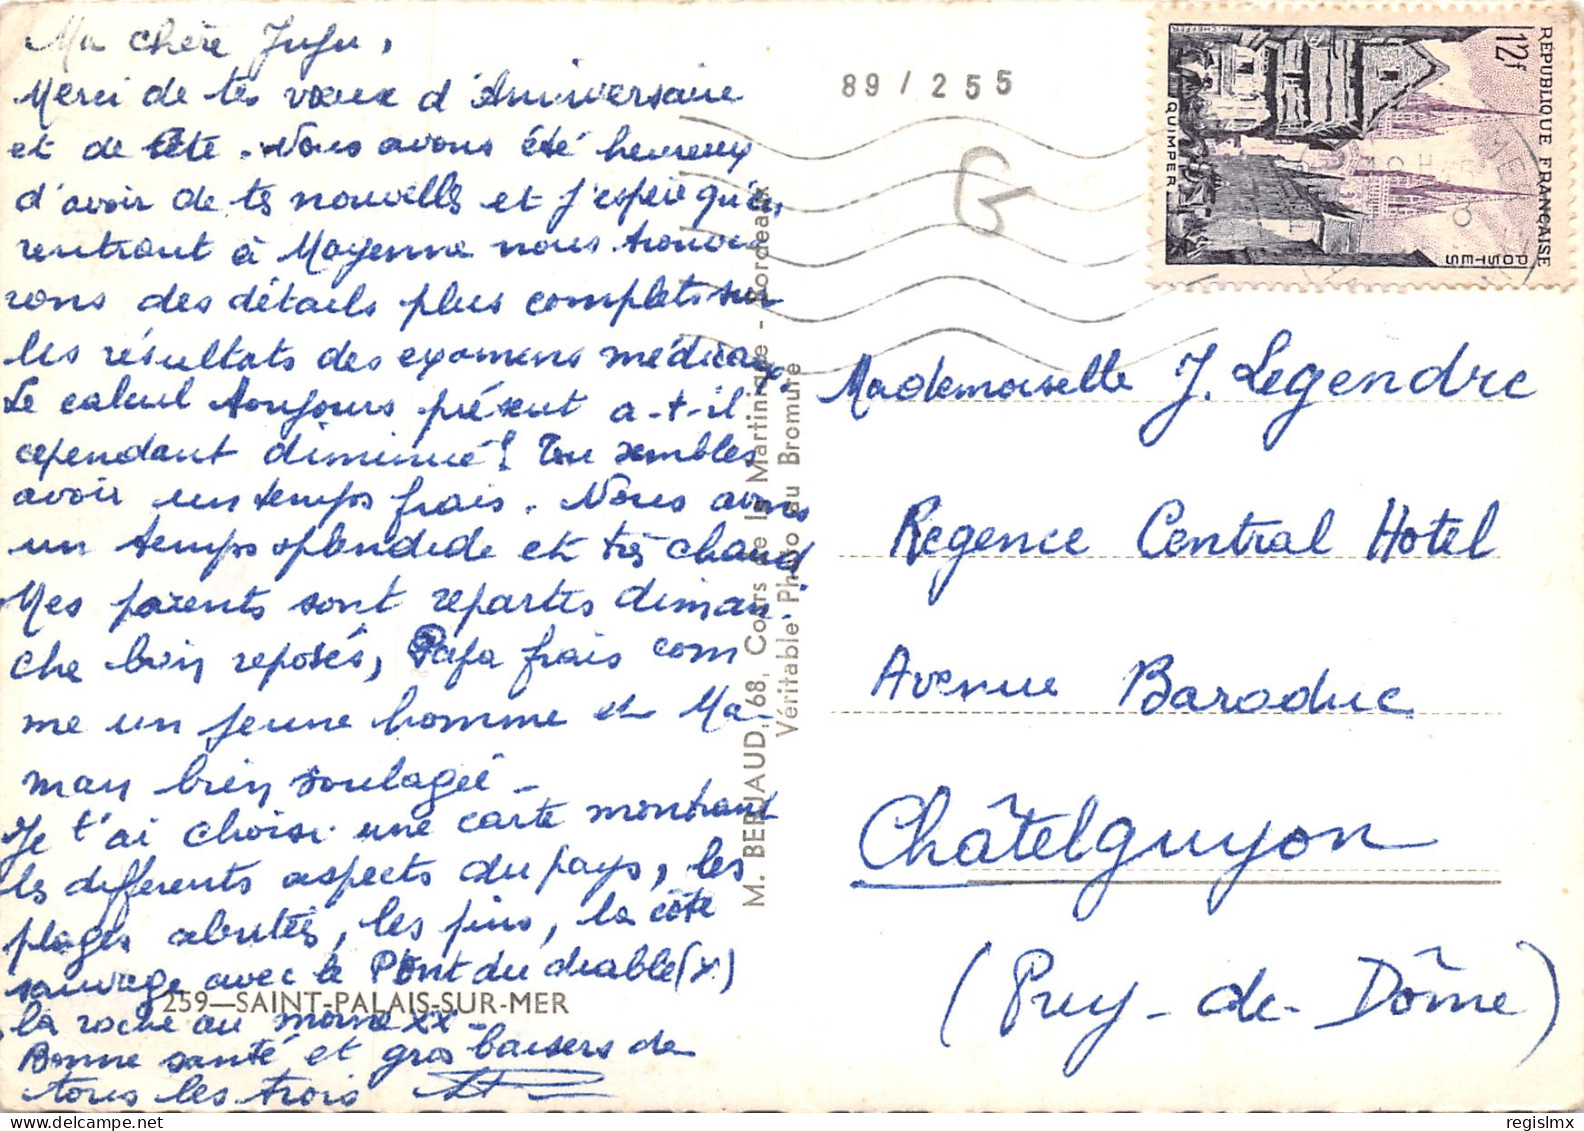 Ma chère Juju,
Merci de tes vœux d'Anniversaire
et de fête. Nous avons été heureux
d'avoir de tes nouvelles et j'espère qu'en
rentrant à Mayenne nous trouve-
rons des détails plus complets sur
les résultats des examens médicaux
Le calcul toujours présent a-t-il
cependant diminué? Tu sembles
avoir un temps frais. Nous avons
un temps splendide et très chaud
Mes parents sont repartis diman-
che bien reposés, Papa frais com
me un jeune homme et Ma-
man bien soulagée -
Je t'ai choisi une carte montrant
les différents aspects du pays, les
plages abritées, les pins, la côte
sauvage avec le Pont du diable (x)
la roche au moine xx -
Bonne santé et gros baisers de
tous les trois
259—SAINT-PALAIS-SUR-MER
M. BERJAUD, 68, Cours de la Martinique - Bordeaux
Véritable Photo au Bromure
89 / 255
RÉPUBLIQUE FRANÇAISE
12f
POSTES
QUIMPER
Mademoiselle J. Legendre
Regence Central Hotel
Avenue Baraduc
Châtelguyon
(Puy-de-Dôme)
regislmx